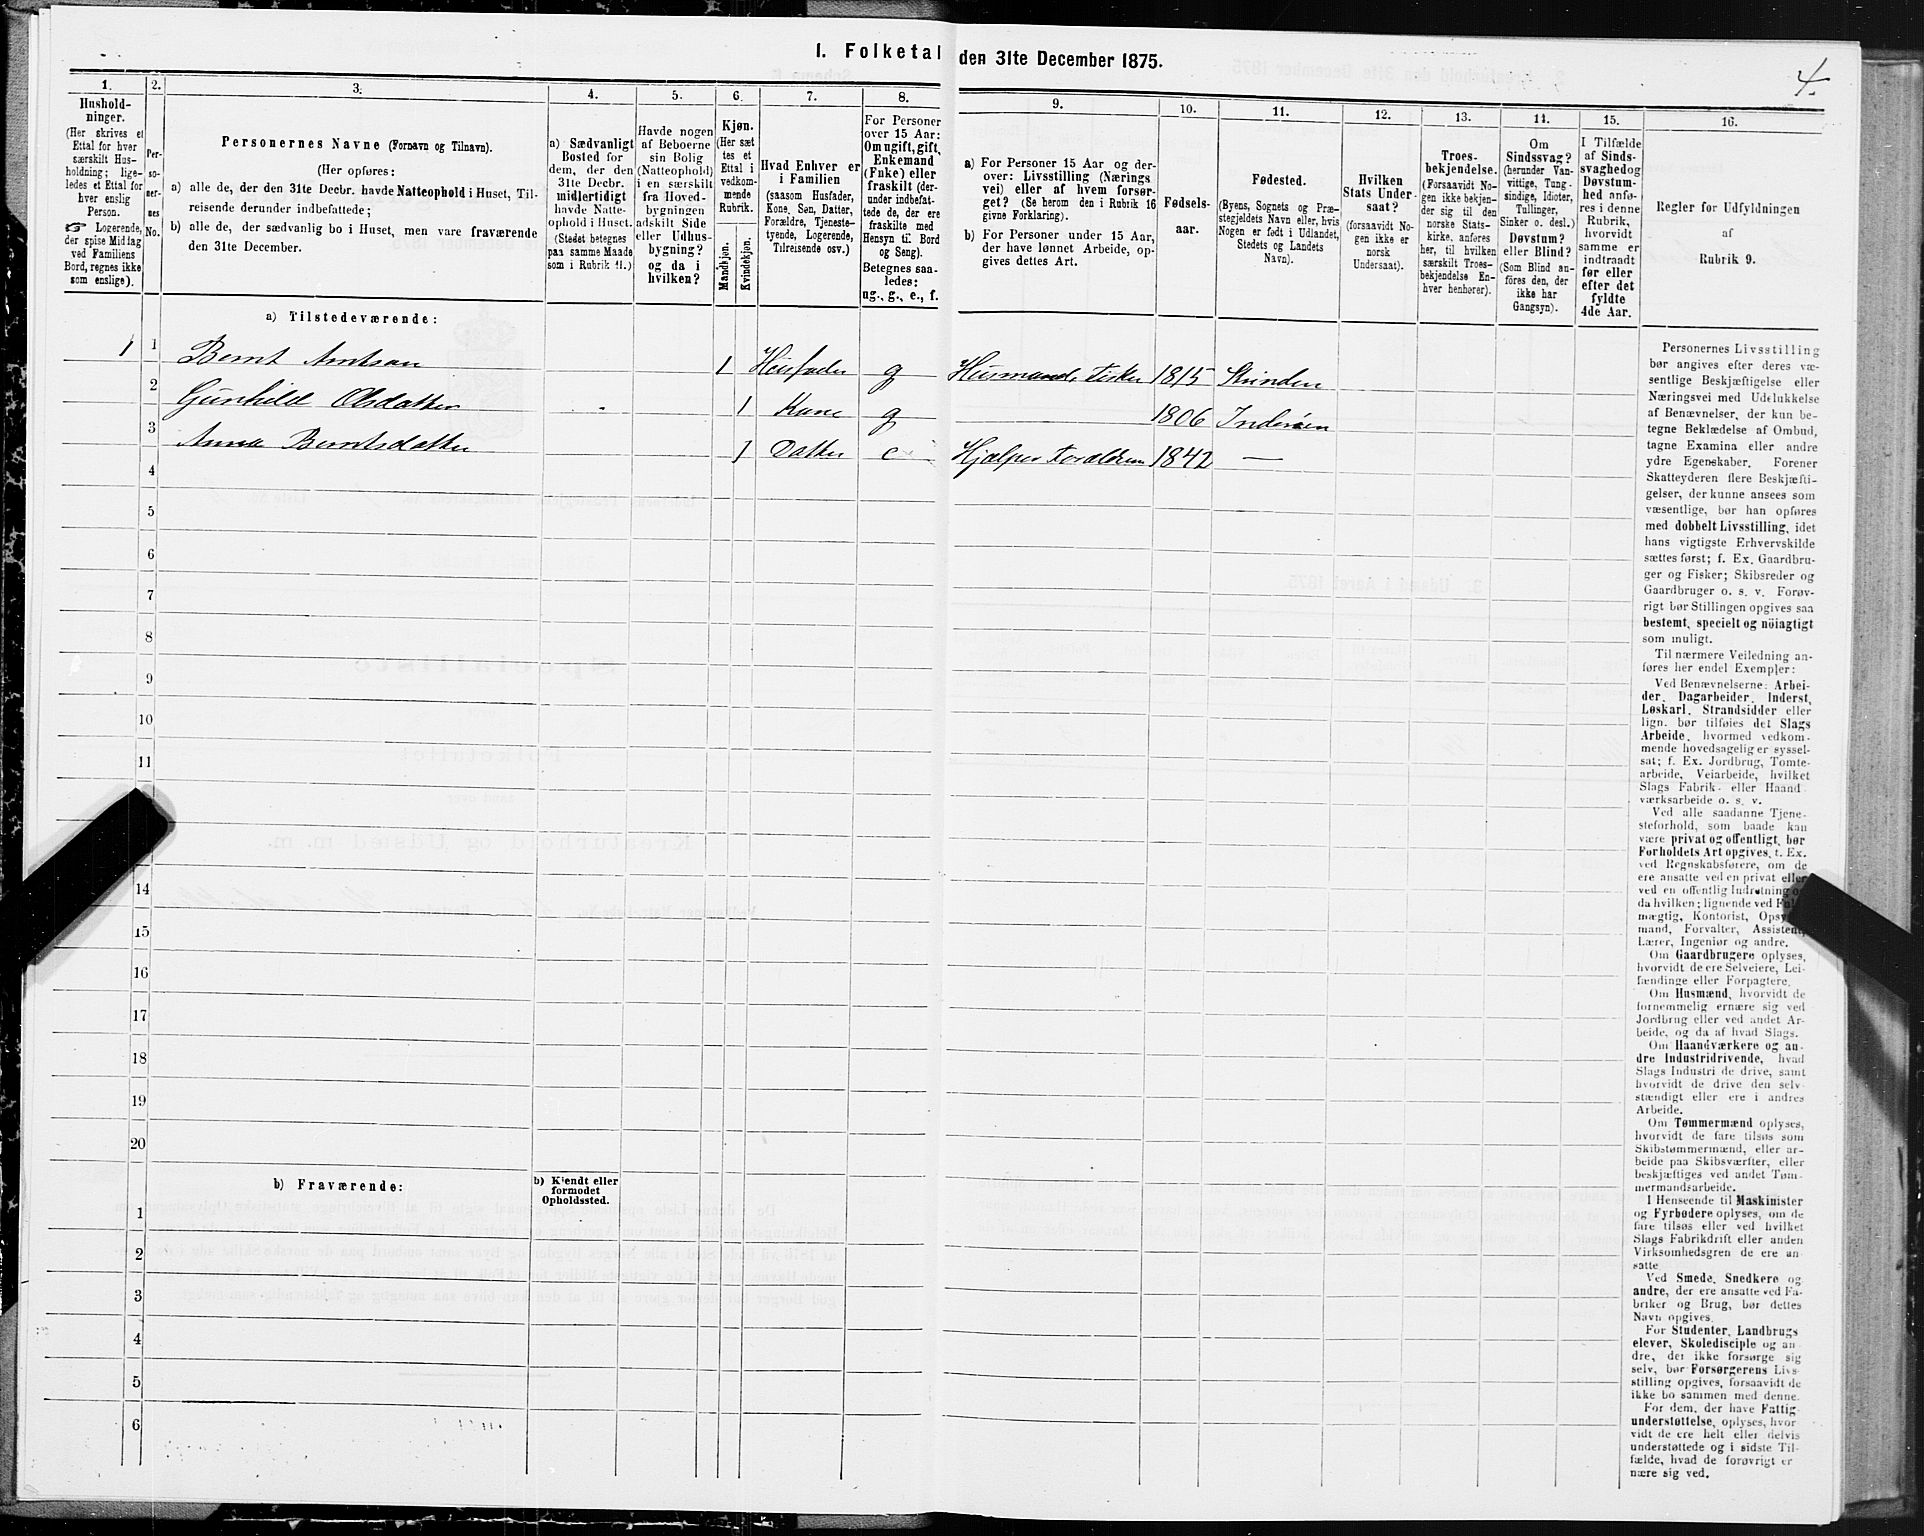 I. Folketal den 31te December 1875.
4.
1.
Hushold-
ninger.
(Her skrives et
Ettal for hver
særskilt Hus-
holdning; lige-
ledes et Ettal for
hver enslig
Person.
☞ Logerende,
der spise Middag
ved Familiens
Bord, regnes ikke
som enslige).
2.
Per-
so-
ner-
nes
No.
3.
Personernes Navne (Fornavn og Tilnavn).
(Her opføres:
a) alle de, der den 31te Decbr. havde Natteophold i Huset, Til-
reisende derunder indbefattede;
b) alle de, der sædvanlig bo i Huset, men vare fraværende
den 31te December.
4.
a) Sædvanligt
Bosted for
dem, der den
31te Decbr.
midlertidigt
havde Natte-
ophold i Huset.
(Stedet betegnes
paa samme Maade
som i Rubrik 11.)
5.
Havde nogen
af Beboerne
sin Bolig
(Natteophold)
i en særskilt
fra Hoved-
bygningen
adskilt Side
eller Udhus-
bygning?
og da i
hvilken?
6.
Kjøn.
(Her sæt
tes et
Ettal i
vedkom-
mende
Rubrik.
Mandkjøn.
Kvindekjøn.
7.
Hvad Enhver er
i Familien
(saasom Husfader,
Kone, Søn, Datter,
Forældre, Tjeneste-
tyende, Logerende,
Tilreisende osv.)
8.
For Personer
over 15 Aar:
Om ugift, gift,
Enkemand
(Enke) eller
fraskilt (der-
under indbefat-
tede de, der ere
fraskilte med
Hensyn til Bord
og Seng).
Betegnes saa-
ledes:
ug., g., e., f.
9.
a) For Personer 15 Aar og der-
over: Livsstilling (Nærings
vei) eller af hvem forsør-
get? (Se herom den i Rubrik 16
givne Forklaring).
b) For Personer under 15 Aar,
der have lønnet Arbeide, op-
gives dettes Art.
10.
Fødsels-
aar.
11.
Fødested.
(Byens, Sognets og Præ-
stegjeldets Navn eller, hvis
Nogen er født i Udlandet,
Stedets og Landets
Navn).
12.
Hvilken
Stats Under-
saat?
(forsaavidt No-
gen ikke er
norsk
Undersaat).
13.
Troes-
bekjendelse.
(Forsaavidt No-
gen ikke bekjen-
der sig til den
norske Stats-
kirke, anføres
her, til hvilken
særskilt Troes-
bekjendelse En-
hver henhører).
14.
Om
Sindssvag?
(herunder Van-
vittige, Tung-
sindige, Idioter,
Tullinger,
Sinker o. desl.)
Døvstum?
eller Blind?
(Som Blind an-
føres den, der
ikke har
Gangsyn).
15.
I Tilfælde
af Sinds-
svaghed og
Døvstum-
hed anfø-
res i denne
Rubrik,
hvorvidt
samme er
indtraadt
før eller
efter det
fyldte
4de Aar.
16.
Regler for Udfyldningen
af
Rubrik 9.
a) Tilstedeværende:
1 1 Bernt Arntsen 1 Husfader g Husmand, Fisker 1815 Strinden
2 Gunhild Olsdatter 1 Kone g 1806 Inderøen
3 Anne Berntsdatter 1 Datter e Hjælper Forældrene 1842 —
4
5
6
7
8
9
10
11
14
15
16
17
18
19
20
b) Fraværende:
b) Kjendt eller
formodet
Opholdssted.
1
2
3
4
5
6
Personernes Livsstilling
bør angives efter deres væ-
sentlige Beskjæftigelse eller
Næringsvei med Udelukkelse
af Benævnelser, der kun be-
tegne Beklædelse af Ombud,
tagne Examina eller andre
ydre Egenskaber. Forener
Skatteyderen flere Beskjæfti-
gelser, der kunne ansees som
væsentlige, bør han opføres
med dobbelt Livsstilling, idet
hans vigtigste Erhvervskilde
sættes først; f. Ex. Gaardbru-
ger og Fisker; Skibsreder og
Gaardbruger o. s. v. Forøv-
rigt bør Stillingen opgives saa
bestemt, specielt og nöiagtigt
som muligt.
Til nærmere Veiledning an-
føres her endel Exempler:
Ved Benævnelserne: Arbei-
der, Dagarbeider, Inderst,
Løskarl, Strandsidder eller
lign. bør tilføies det Slags
Arbeide, hvormed vedkom-
mende hovedsagelig er syssel-
sat; f. Ex. Jordbrug, Tomte-
arbeide, Veiarbeide, hvilket
Slags Fabrik- eller Haand-
værksarbeide o. s. v.
Ved alle saadanne Tjene-
steforhold, som baade kan
være privat og offentligt, bør
Forholdets Art opgives, t. Ex.
ved Regnskabsførere, om de
ere ansatte ved en privat eller
ved en offentlig Indretning og
da hvilken; lignende ved
mægtig, Kontorist,
mand, Forvalter, Assistent,
Lærer, Ingeniør og andre.
Om Gaardbrugere oplyses,
hvorvidt de ere Selveiere, Lei-
fændinge eller Forpagtere.
Om Husmænd, hvorvidt de
fornemmelig ernære sig ved
Jordbrug eller ved andet Ar-
beide, og da af hvad Slags.
Om Haandværkere og an-
dre Industridrivende, hvad
Slags Industri de drive, samt
hvorvidt de drive den selv-
stændigt eller ere i andres
Arbeide.
Om Tømmermænd oplyses,
hvorvidt de fare tilsøs som
Skibstømmermænd, eller ar-
beide paa Skibsværfter, eller
beskjæftiges ved andet Tøm-
mermandsarbeide.
I Henseende til Maskinister
og Fyrbødere oplyses, om de
fare tilsøs eller ved hvilket
Slags Fabrikdrift eller anden
Virksomhedsgren de ere an-
satte
Ved Smede, Snedkere og
andre, der ere ansatte ved Fa-
briker og Brug, bør dettes
Navn opgives.
For Studenter, Landbrugs
elever, Skoledisciple og an
dre, der ikke forsørge sig
selv, bør Forsørgerens Livs-
stilling opgives, forsaavidt de
ikke bo sammen med denne.
For dem, der have Fattig
understøttelse, oplyses, hvor
vidt de ere helt eller delvis
understøttede og i sidste Til-
fælde, hvad de forøvrigt er
nære sig ved.